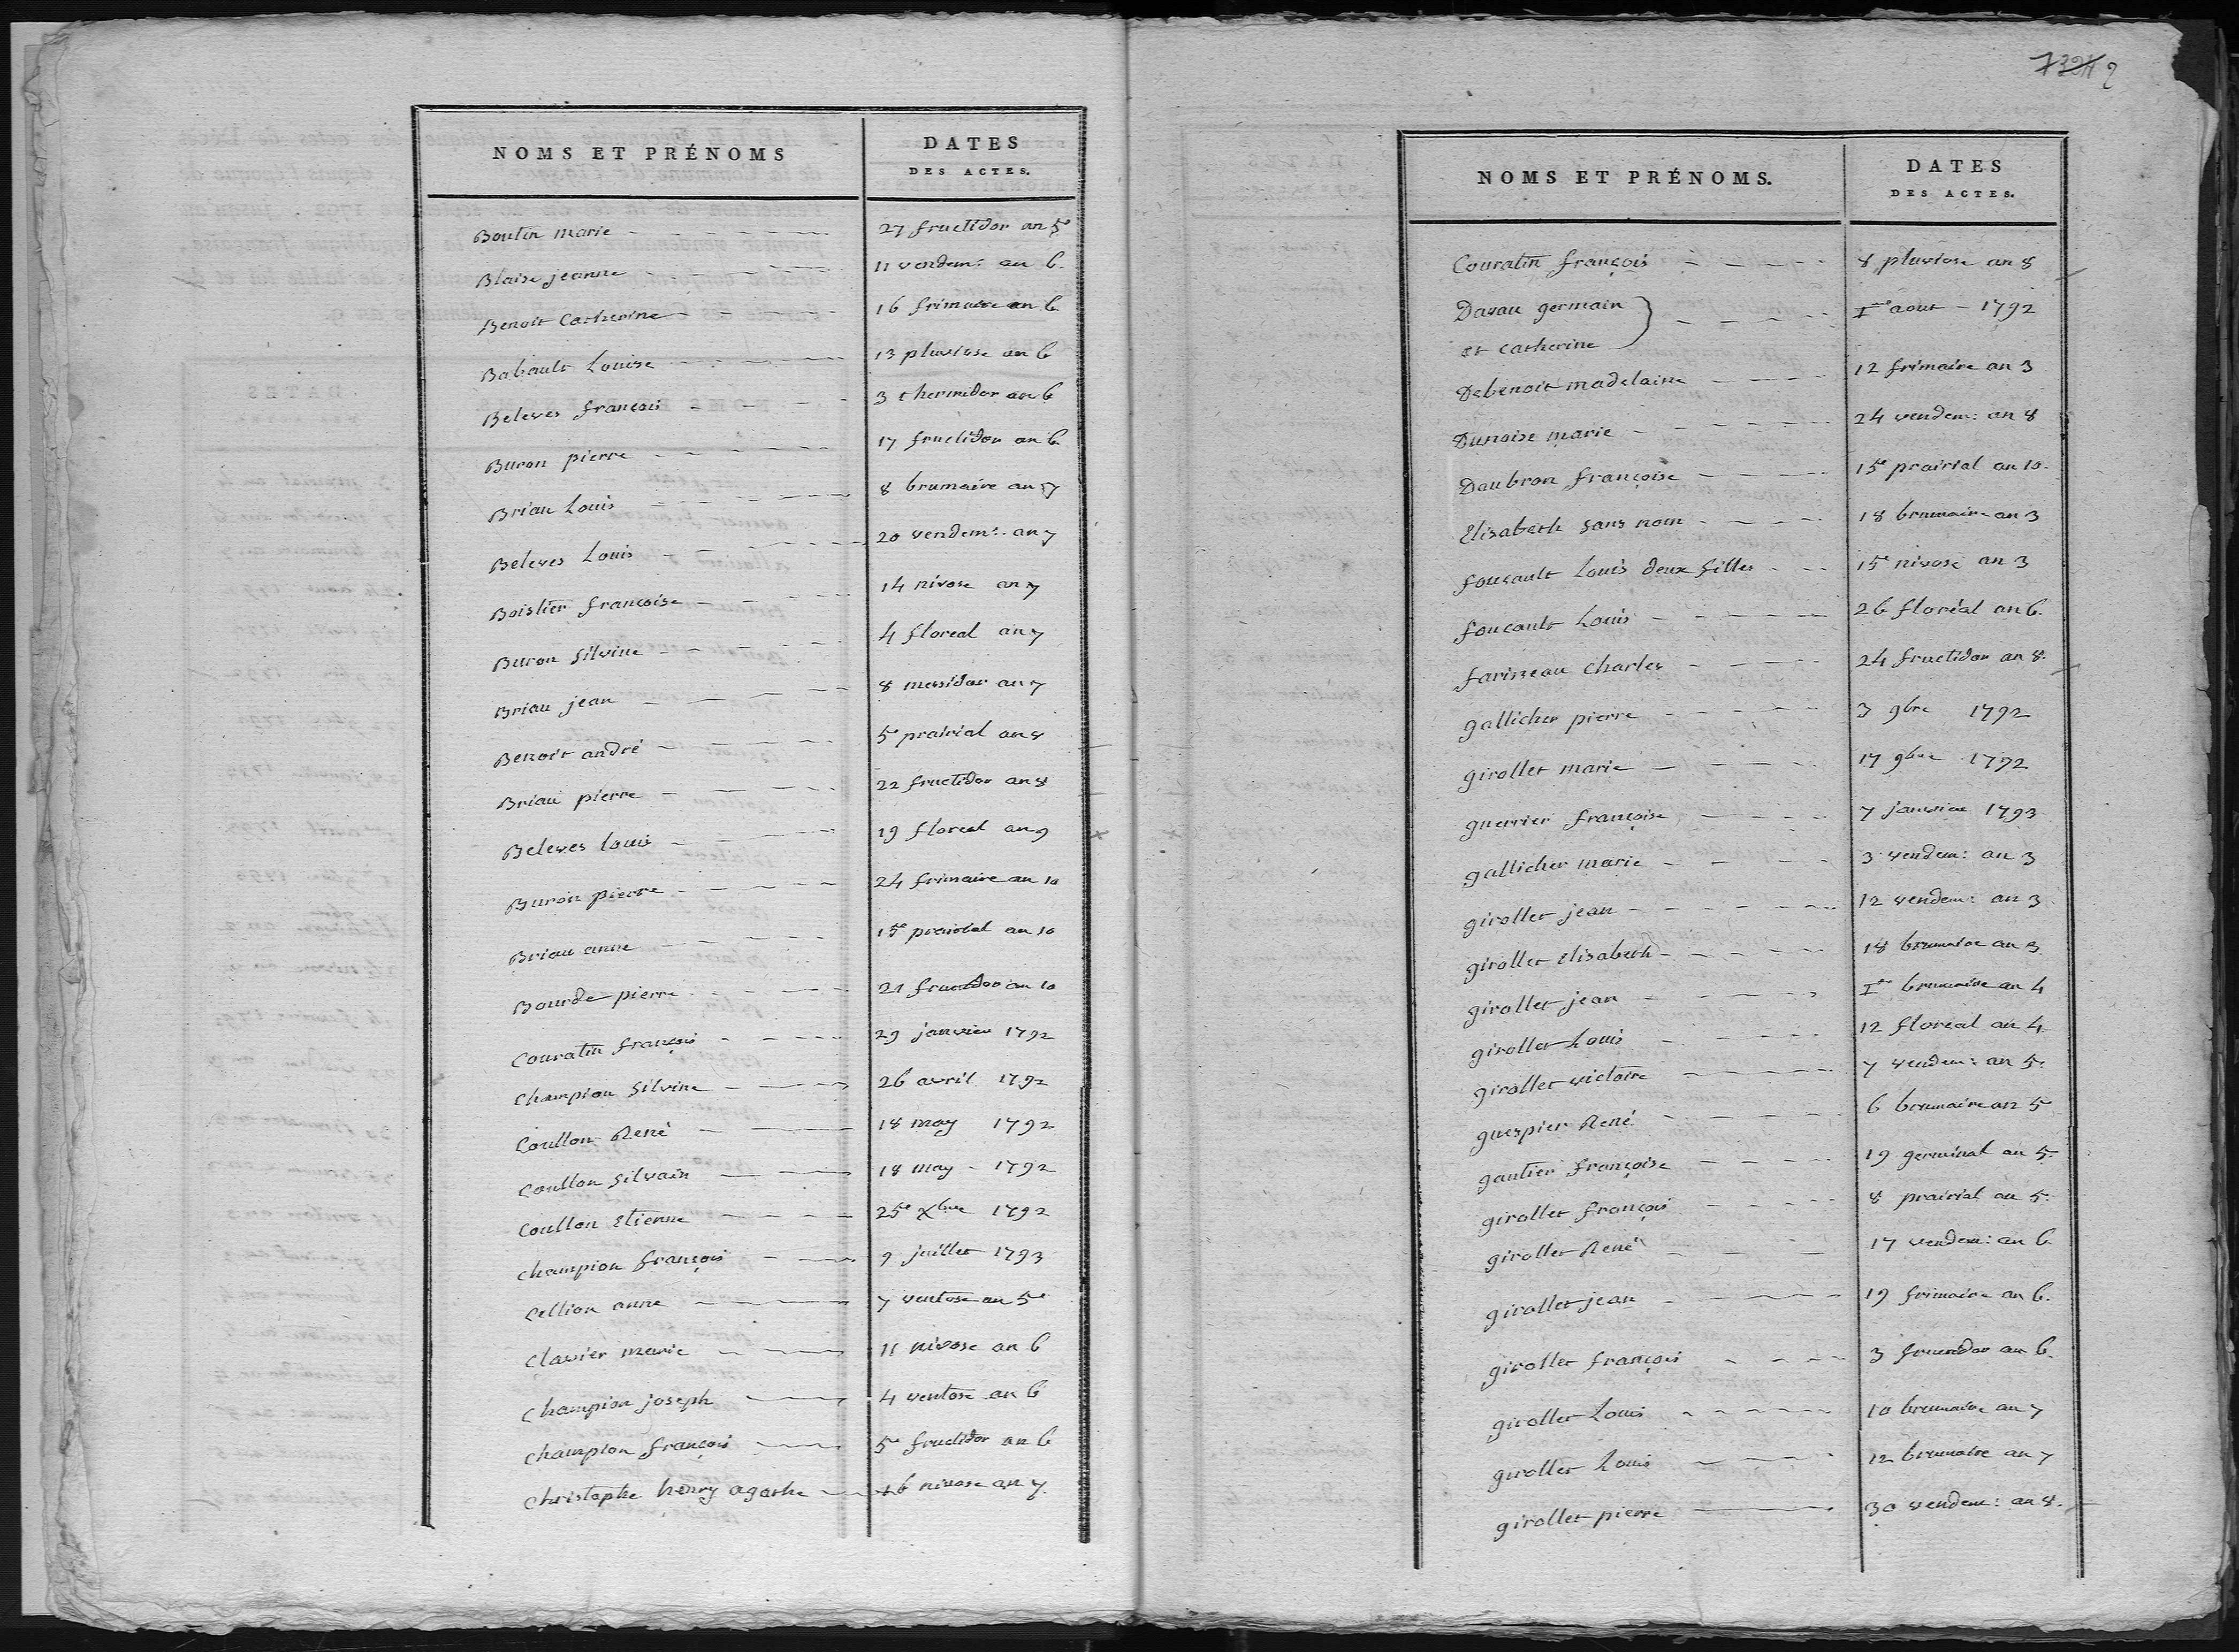 NOMS ET PRÉNOMS
DATES
DES ACTES.
Boutin marie 27 fructidor an 5e
Blaise jeanne 11 vendem: an 6.
Benoit Catherine 16 frimaire an 6
Babault Louise 13 pluviose an 6
Beleves françois 3 thermidor an 6
Buron pierre 17 fructidor an 6
Briau Louis 8 brumaire an 7
Beleves Louis 20 vendem: an 7
Boislier françoise 14 nivose an 7
Buron Silvine 4 floreal an 7
Briau jean 8 messidor an 7
Benoit andré 5e prairial an 8
Briau pierre 22 fructidor an 8
Beleves louis 19 floreal an 9
Buron pierre 24 frimaire an 10
Briau anne 15e prairial an 10
Bourde pierre 21 fructidor an 10
Couratin françois 29 janvier 1792
Champion Silvine 26 avril 1792
Coullon René 18 may 1792
Coullon Silvain 18 may 1792
Coullon Etienne 25e Xbre 1792
Champion françois 9 juillet 1793
Cellion anne 7 ventose an 5e
Clavier marie 11 nivose an 6
Champion joseph 4 ventose an 6
Champion françois 5e fructidor an 6
Christophe henry agathe 16 nivose an 7
2
NOMS ET PRÉNOMS.
DATES
DES ACTES.
Couratin françois 8 pluviose an 8
Davau germain
et catherine Ier aout 1792
Debenoit madelaine 12 frimaire an 3
Dunoise marie 24 vendem: an 8
Daubron françoise 15e prairial an 10.
Elisabeth sans nom 18 brumaire an 3
foucault Louis deux filles 15e nivose an 3
foucault Louis 26 floréal an 6.
farisseau Charles 24 fructidor an 8.
gallicher pierre 3 9bre 1792
girollet marie 17 9bre 1792
guerrier françoise 7 janvier 1793
gallicher marie 3 vendem: an 3
girollet jean 12 vendem: an 3
girollet Elisabeth 18 brumaire an 3
girollet jean Ier brumaire an 4
girollet Louis 12 floreal an 4
girollet victoire 7 vendem: an 5e
guespier René 6 brumaire an 5e
gautier françoise 19 germinal an 5e
girollet françois 8 prairial an 5e
girollet René 17 vendem: an 6
girollet jean 19 frimaire an 6.
girollet françois 3 fructidor an 6.
girollet Louis 10 brumaire an 7
girollet Louis 12 brumaire an 7
girollet pierre 30 vendem: an 8.